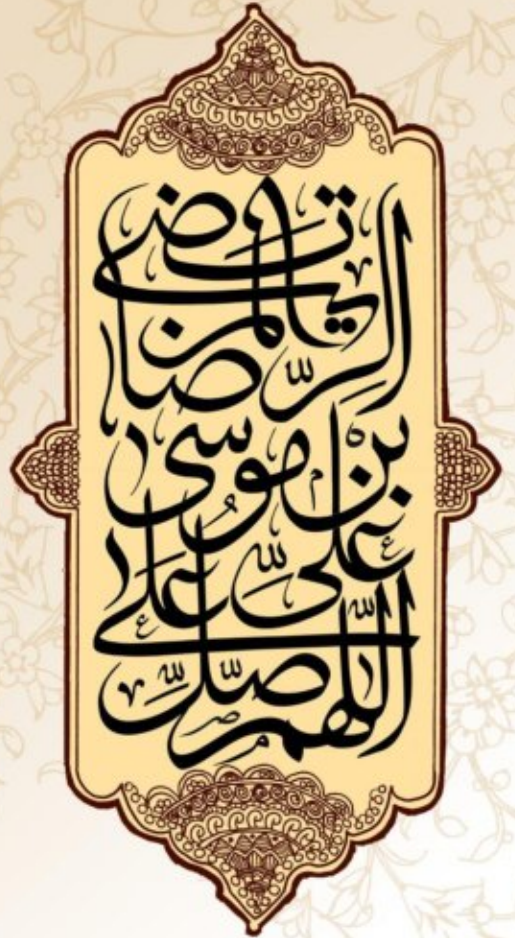 اللّهم صلّ علی
علیّ بن موسی
الرّضا المرتضی